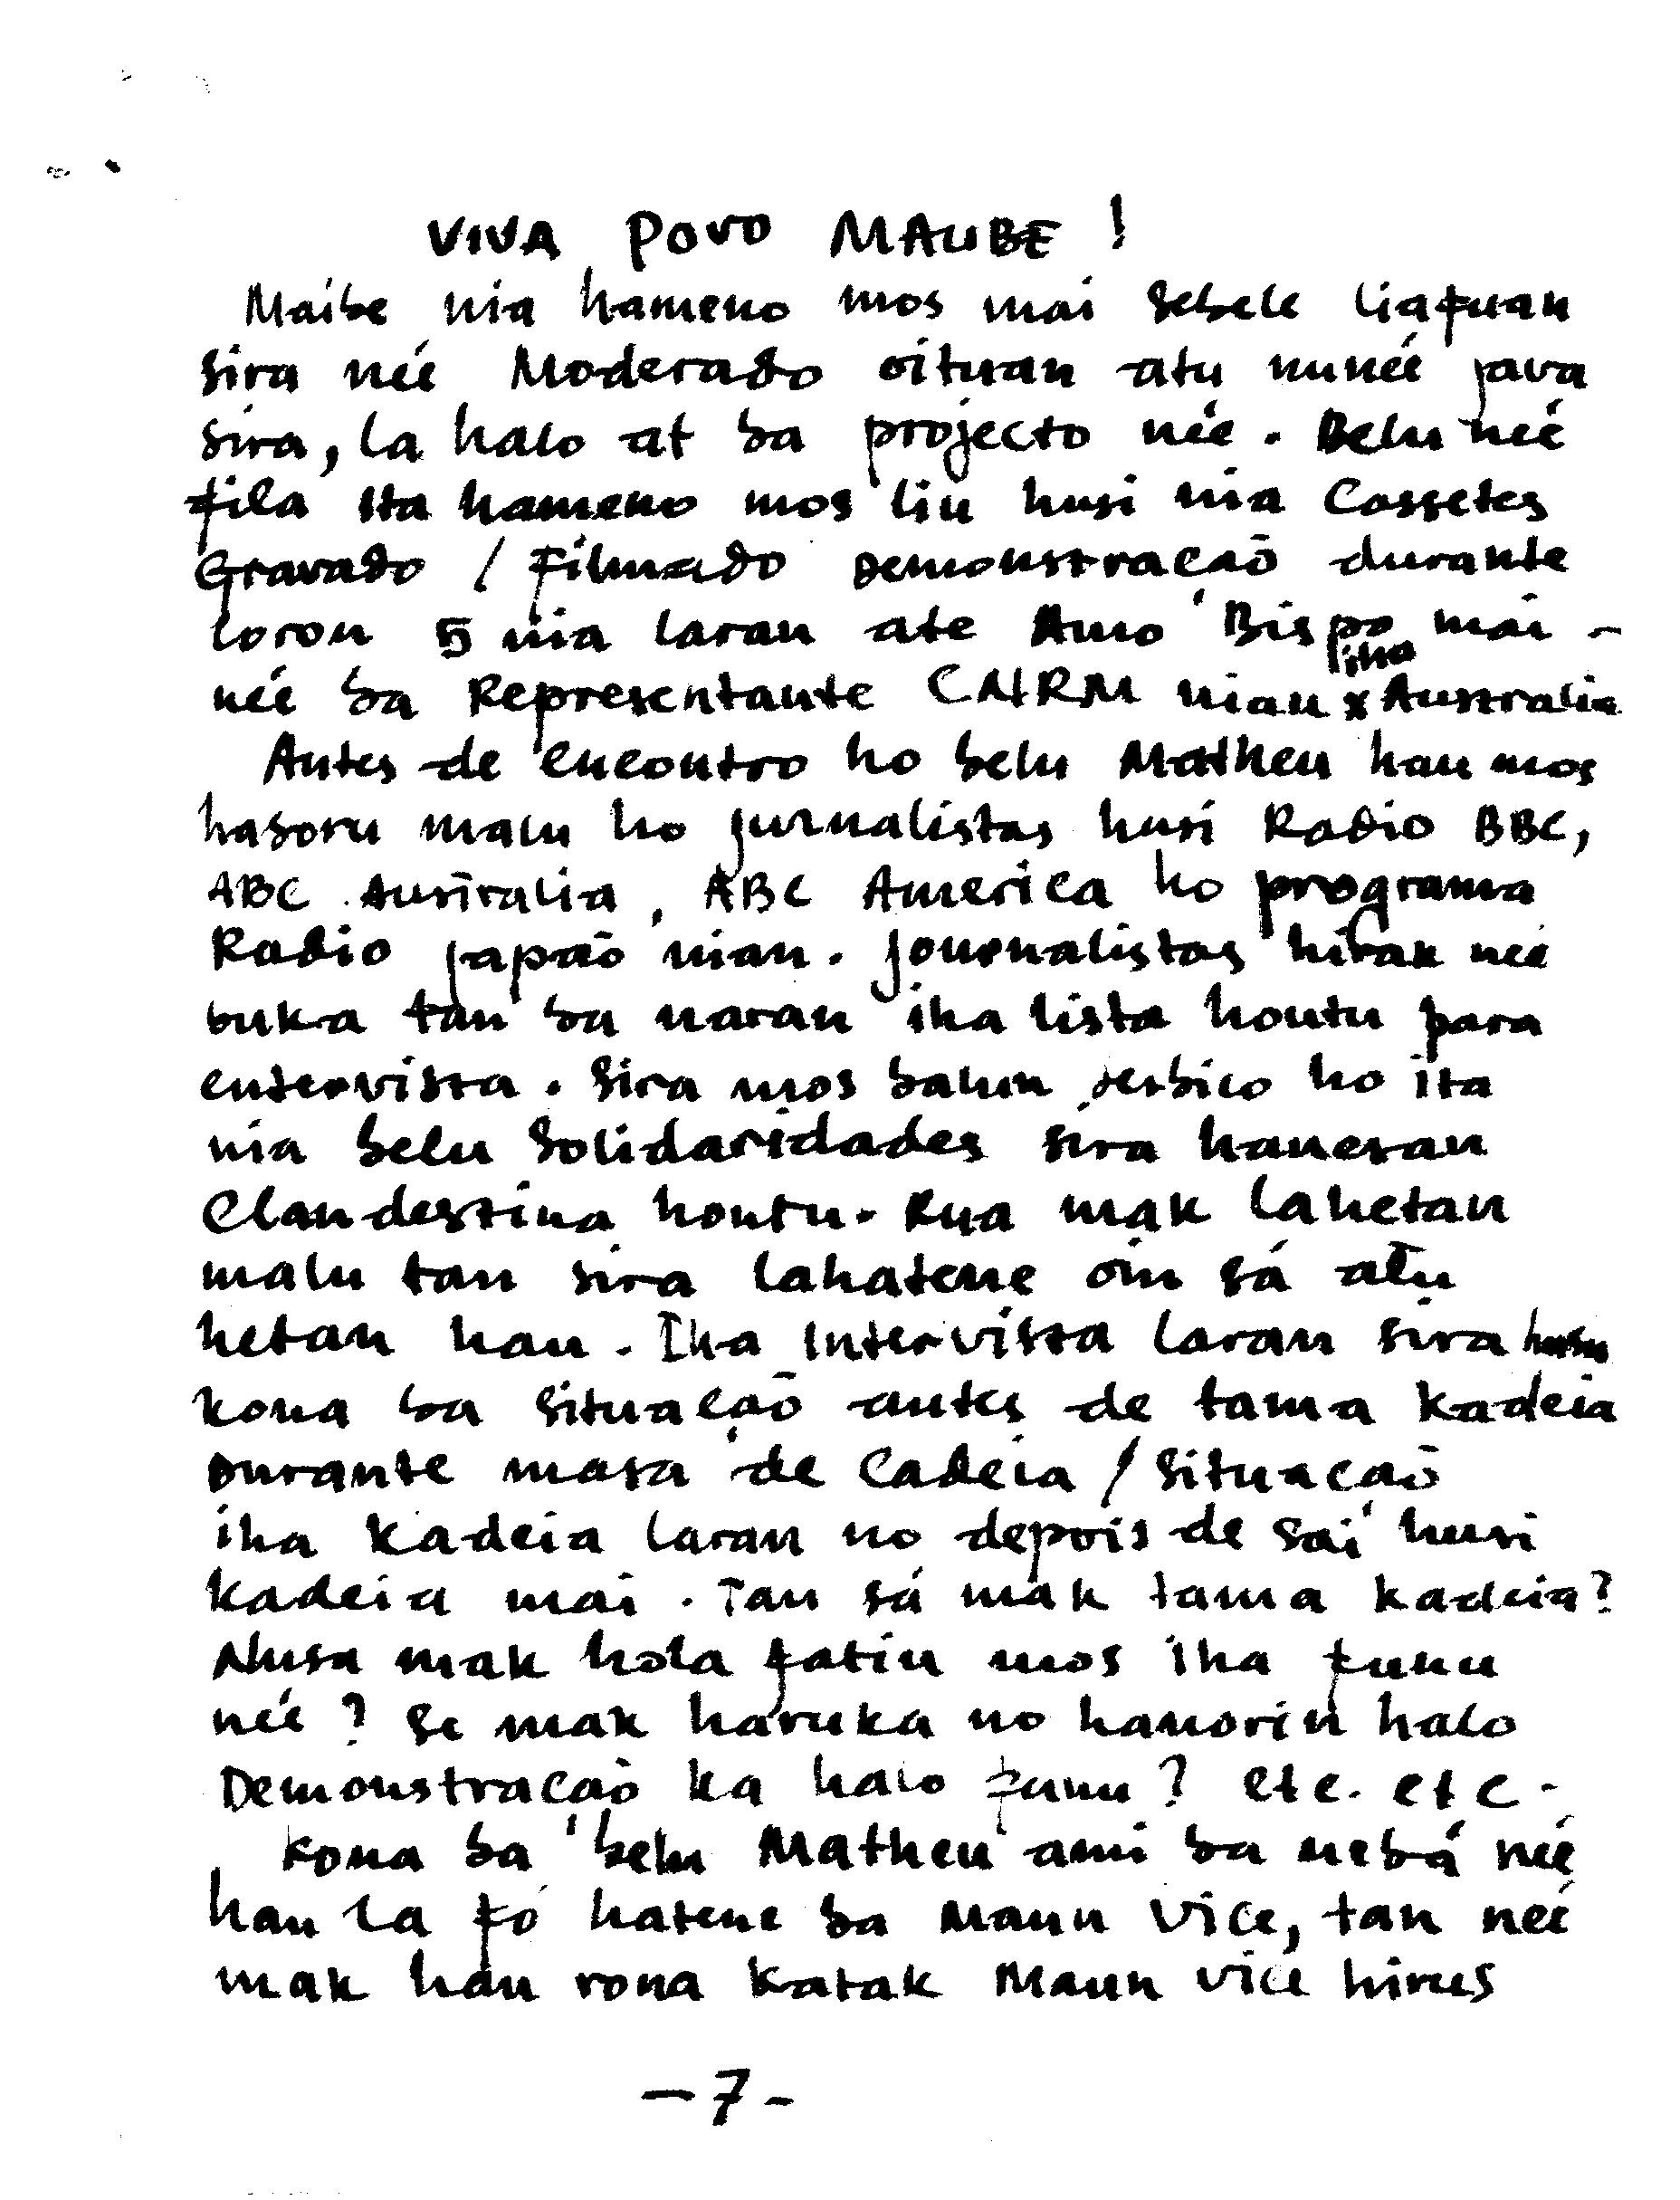 VIVA POVO MAUBE !
Maibe nia hameno mos mai sebele liafuan
sira neé Moderado oituan atu nuneé java
sira, la halo at ba projecto neé. Belu neé
fila ita hameno mos liu husi nia Cassetes
Gravado / Filmado Demonstração durante
loron 5 nia laran ate Amo Bispo mai -
neé ba Representante CNRM nian x iha Australia
Antes de encontro ho belu Matheu hau mos
hasoru malu ho jurnalistas husi Radio BBC,
ABC Australia, ABC America ho programa
Radio Japaõ nian. Journalistas hirak neé
buka tan ba naran iha lista hontu para
entervista. Sira mos bahu serbico ho ita
nia belu Solidaridades sira hanesan
Clandestina hontu. Rua mak lahetan
malu tan sira lahatene oin sá atu
hetan hau. Iha Intervista laran sira husu
kona ba Situaçaõ antes de tama kadeia
Durante masa de Cadeia / Situaçaõ
iha Kadeia laran no depois de sai husi
kadeia mai. Tan sá mak tama kadeia?
Nusa mak hola fatin mos iha funu
neé? Se mak haruka no hanorin halo
Demonstraçaõ ka halo funu? etc. etc.
Kona ba belu Matheu ami ba nebá neé
hau la fó hatene ba Maun Vice, tan neé
mak hau rona katak Maun Vice hirus
- 7 -